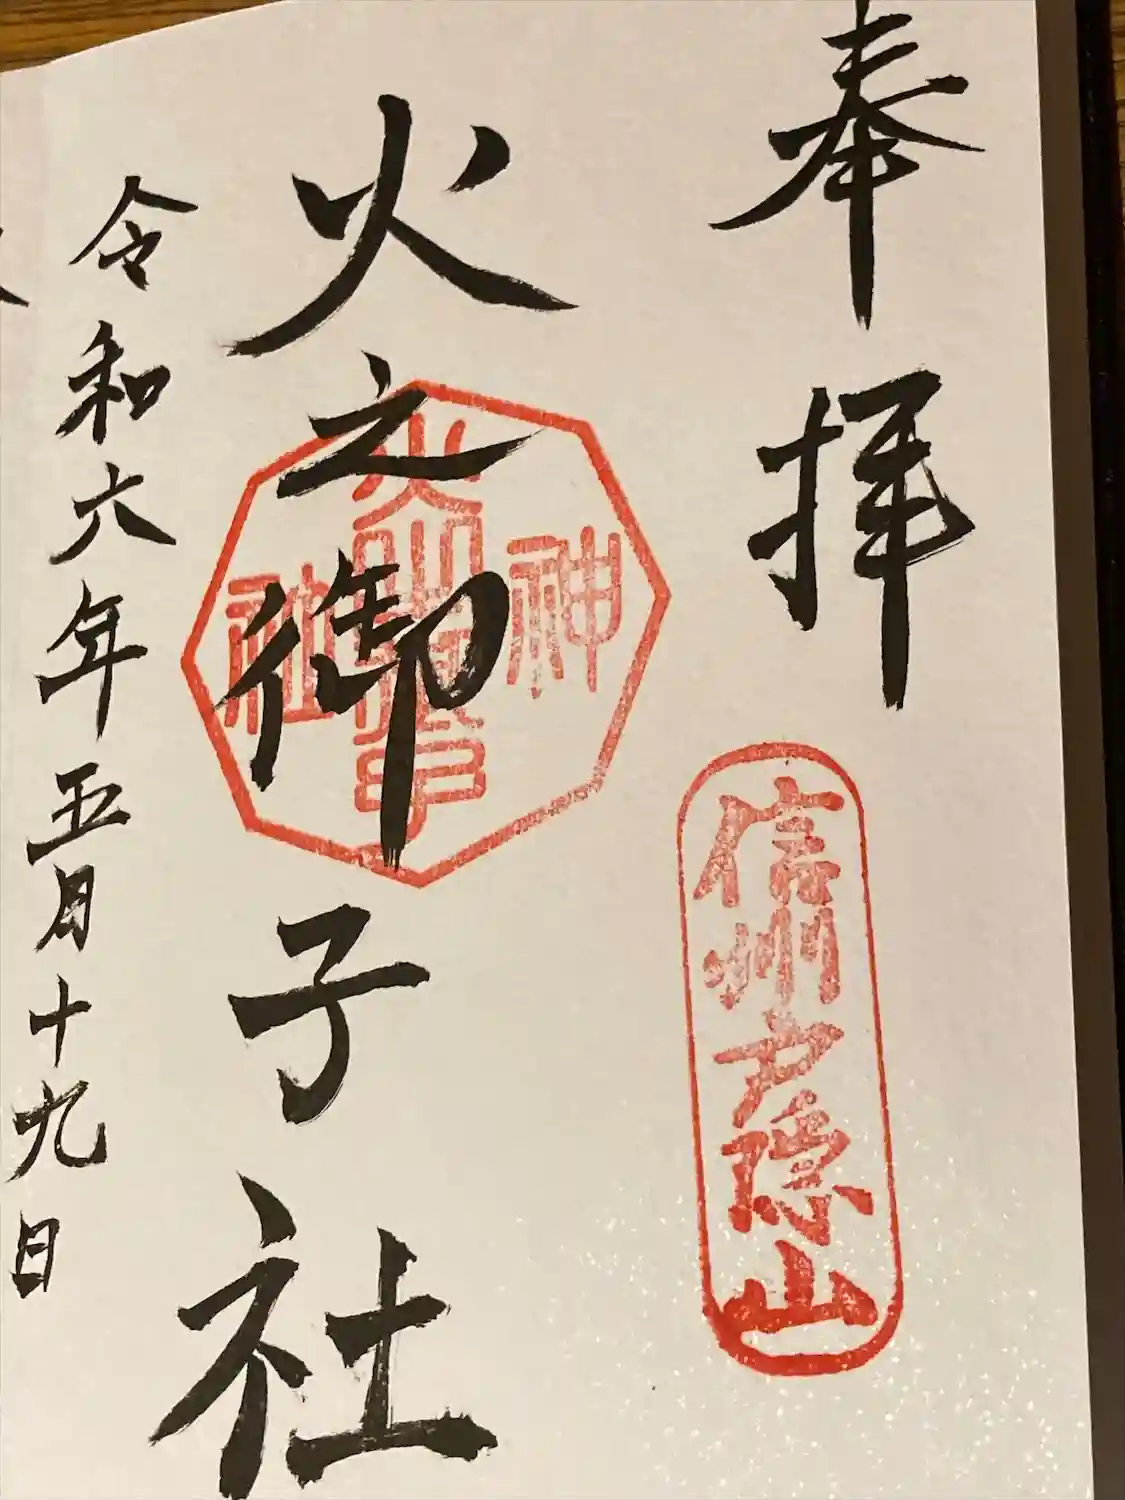 奉拝
信州戸隠山
火之御子社
令和六年五月十九日